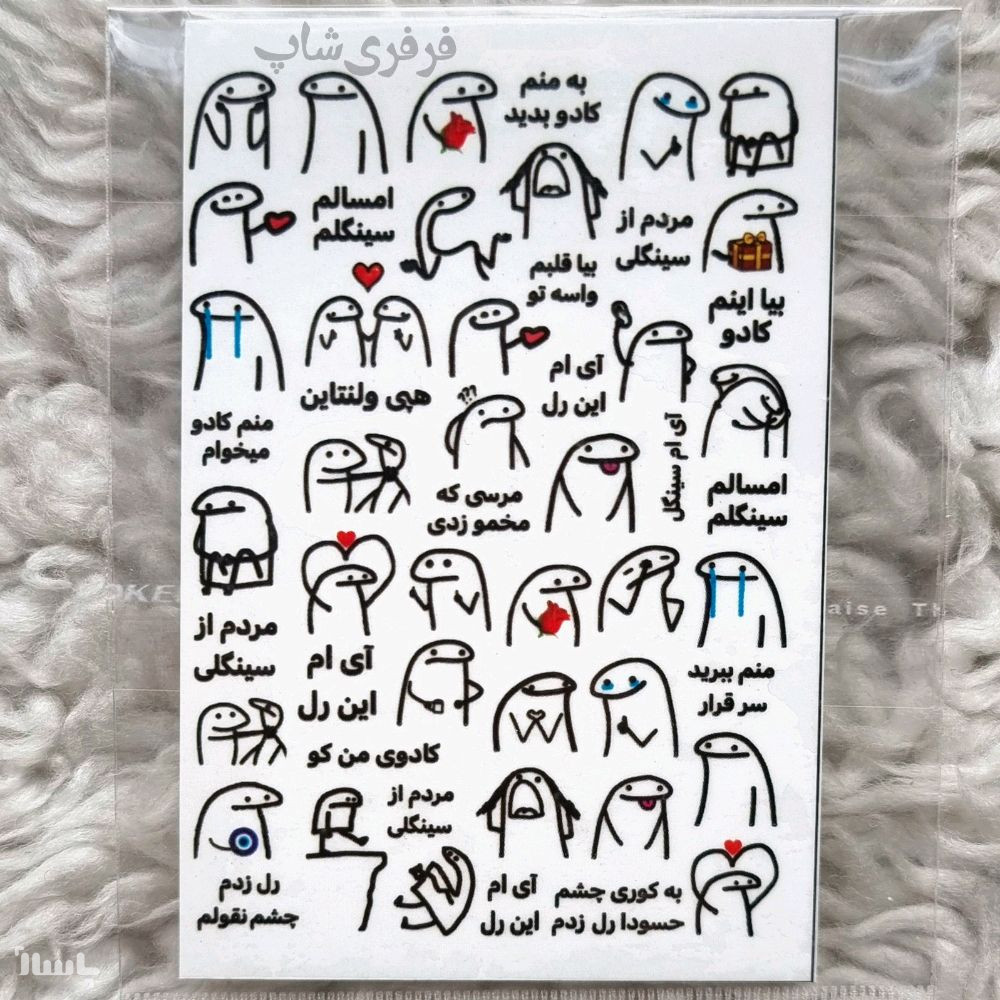 فرفری شاپ
به منم
کادو بدید
امسالم
سینگلم
مردم از
سینگلی
بیا قلبم
واسه تو
بیا اینم
کادو
آی ام
این رل
هپی ولنتاین
منم کادو
میخوام
آی ام سینگل
مرسی که
مخمو زدی
امسالم
سینگلم
مردم از
سینگلی
آی ام
این رل
منم ببرید
سر قرار
کادوی من کو
مردم از
سینگلی
رل زدم
چشم نقولم
آی ام
این رل
به کوری چشم
حسودا رل زدم
aise TH
OKE
باسلام